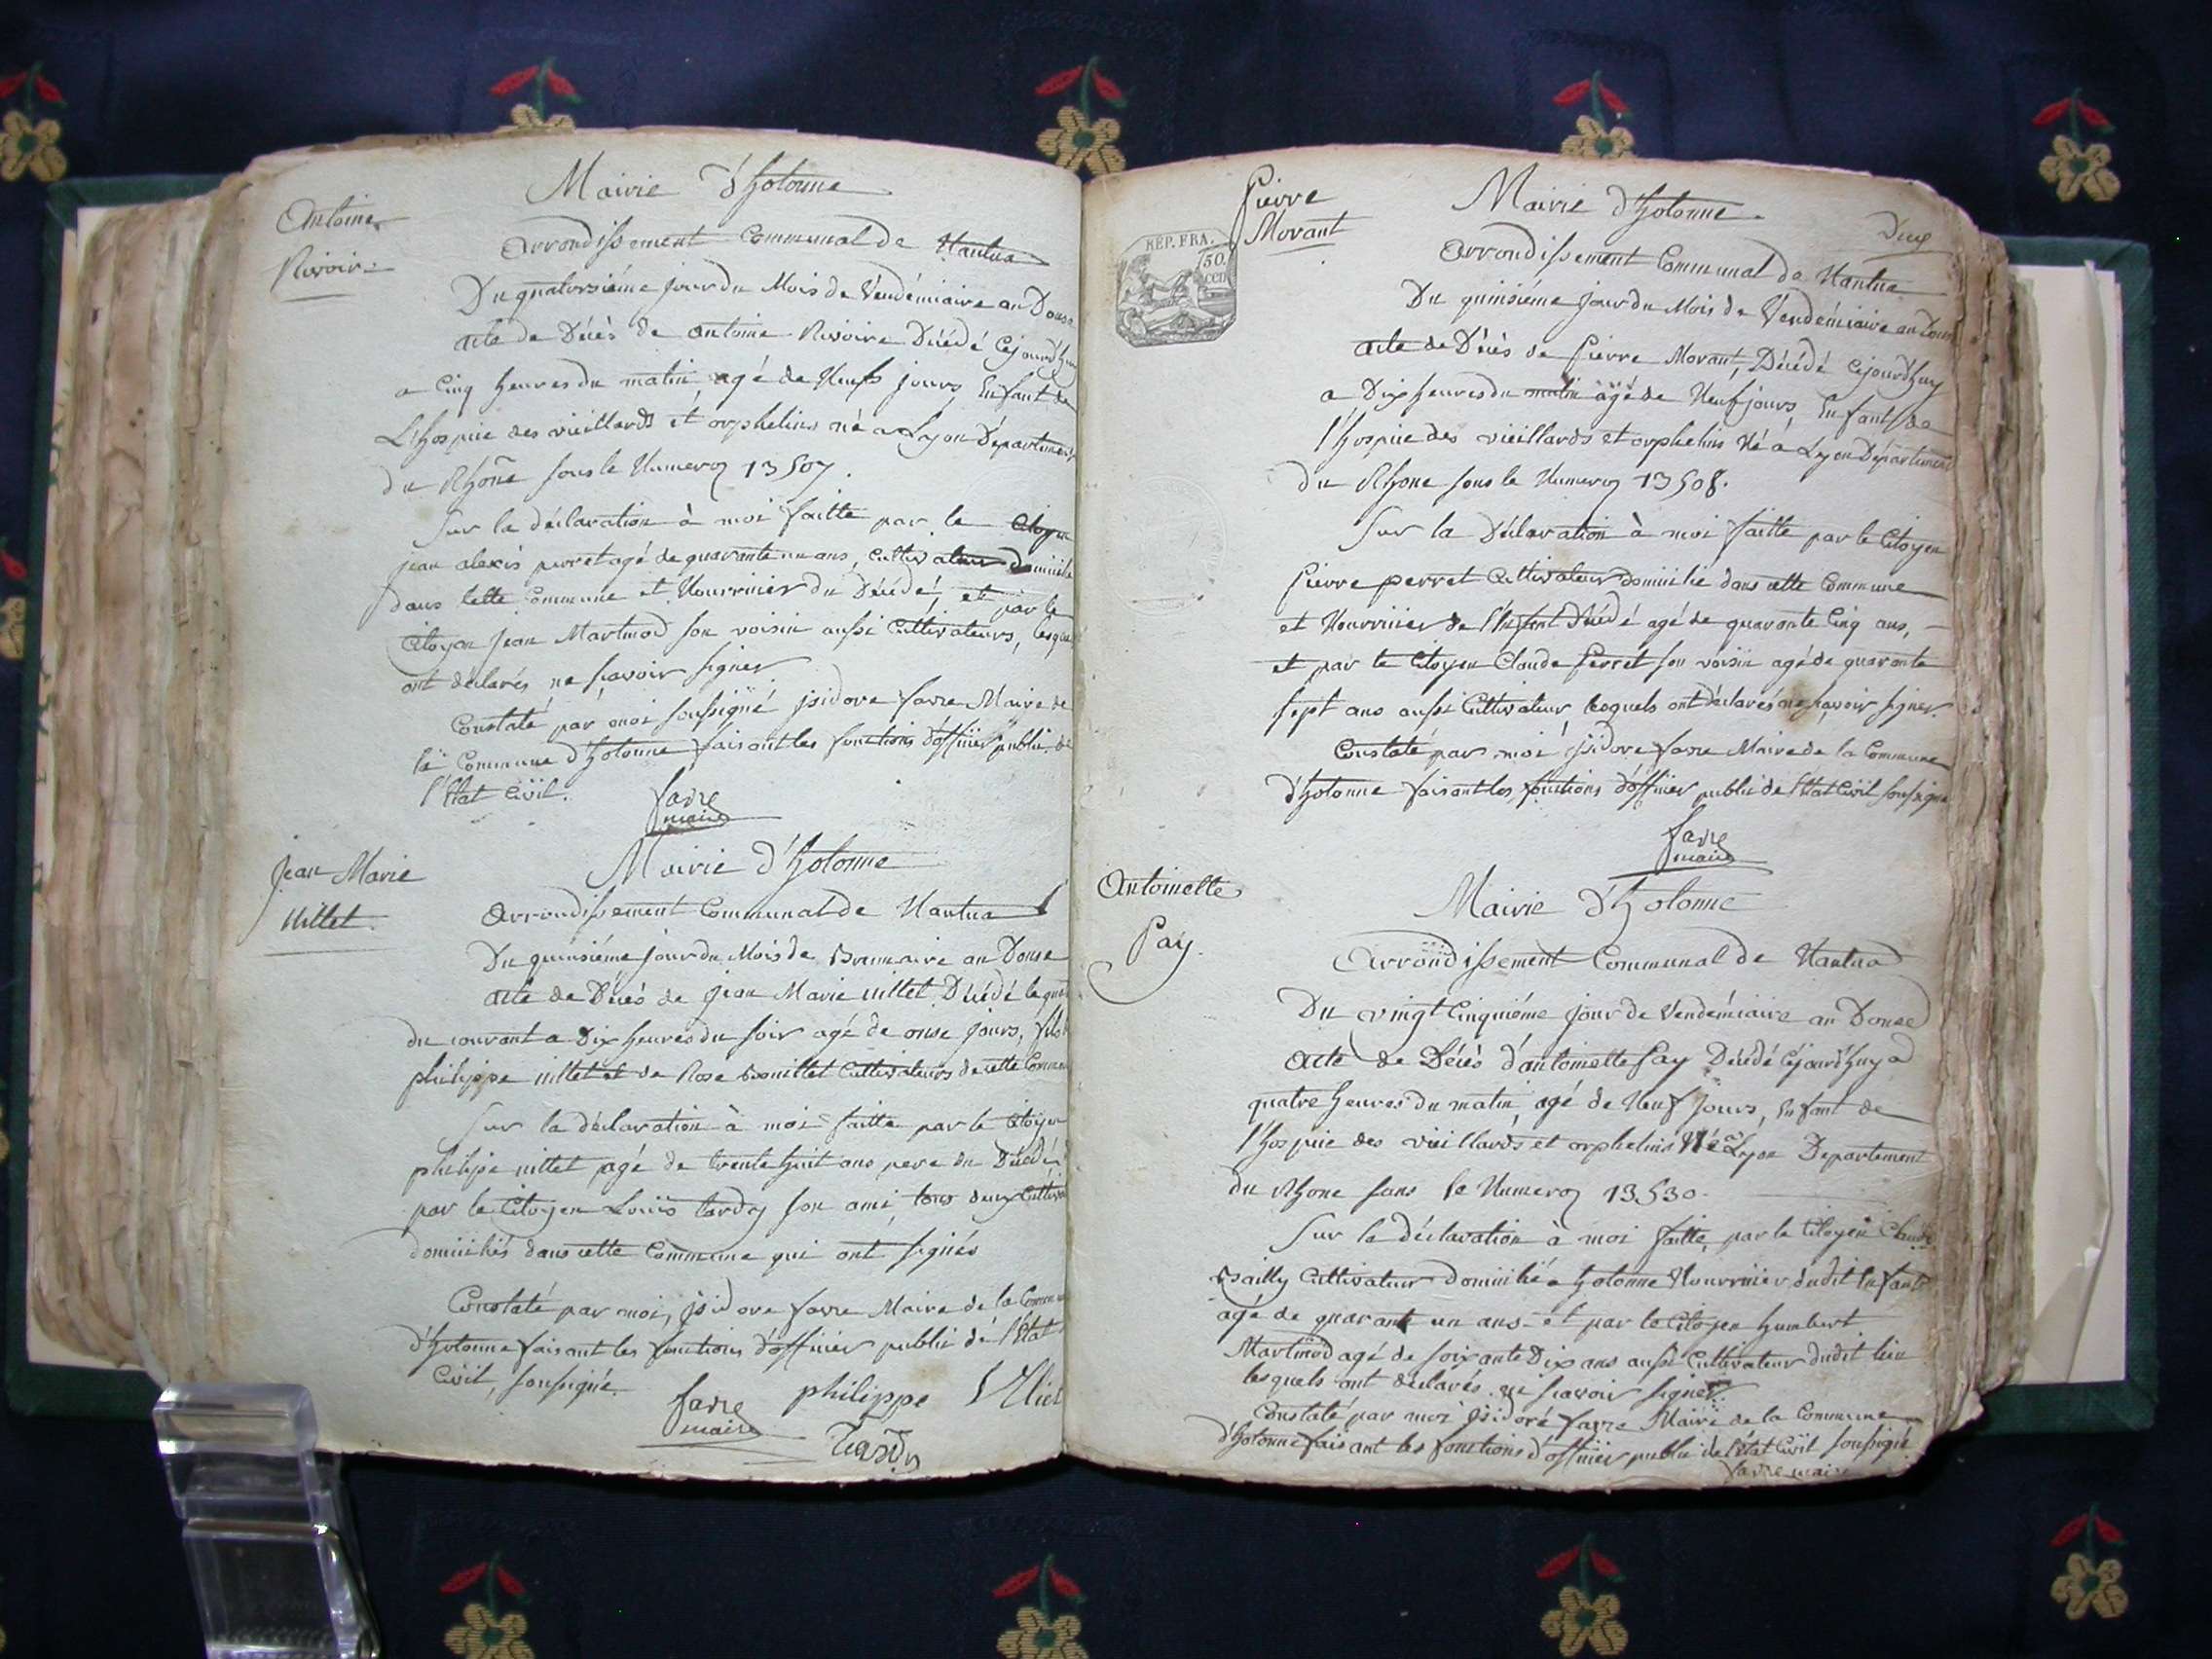 Antoine
Rivoire
Mairie d'hotonne
Arrondissement Communal de Nantua
Du quatorsiéme jour du Mois de Vendémiaire an Douse
acte de Décès de antoine Rivoire Décédé cejourd'huy
a Cinq heures du matin agé de Neufs jours, Enfant de
L'hospice des vieillards et orphelins né a Lyon Département
du Rhône sous le Numero 13507.
Sur la déclaration à moi faitte par le Citoyen
jean alexis perret agé de quarante un ans, cultivateur domicilié
dans cette Commune et Nourricier du Décédé, et par le
Citoyen Jean Martinod son voisin aussi Cultivateurs, lesquels
ont déclarés ne scavoir signer
Constaté par moi soussigné jsidore favre Maire de
la Commune d'hotonne faisant les fonctions d'officier public de
l'Etat Civil.
favre
maire
Jean Marie
Nillet
Mairie d'hotonne
Arrondissement Communal de Nantua
Du quinsiéme jour du Mois de Brumaire an Douse
acte de Décès de Jean Marie nillet Décédé le
du courant a Dix heures du soir agé de onse jours, fils
philippe nillet et de Rose Cultivateurs de cette Commune
Sur la déclaration à moi faitte par le Citoyen
philipe nillet agé de trente huit ans pere du Décédé
par le Citoyen Louis tardy son ami tous deux Cultivateurs
domiciliés dans cette Commune qui ont signés
Constaté par moi, jsidore favre Maire de la Commune
d'hotonne faisant les fonctions d'officier public de l'Etat
Civil, soussigné
favre
maire
philippe
Tardy
Pierre
Morant
RÉP. FRA.
50.
cen
Mairie d'hotonne
Deux
Arrondissement Communal de Nantua
Du quinsiéme jour du Mois de Vendémiaire an Douse
acte de Décès de Pierre Morant, Décédé cejourd'huy
a Dix heures du matin agé de Neuf jours, Enfant de
l'hospice des vieillards et orphelins Né à Lyon Département
du Rhone sous le Numero 13508.
Sur la Déclaration à moi faitte par le Citoyen
Pierre perret Cultivateur domicilié dans cette Commune
et Nourricier de l'Enfant Décédé agé de quarante Cinq ans,
et par le Citoyen Claude Perret son voisin agé de quarante
sept ans aussi Cultivateur, lesquels ont déclarés ne scavoir signer.
Constaté par moi jsidore favre Maire de la Commune
d'hotonne faisant les fonctions d'officier public de l'Etat Civil soussigné
favre
maire
Antoinette
Pay.
Mairie d'hotonne
Arrondissement Communal de Nantua
Du vingt Cinquiéme jour de Vendémiaire an Douse
Acte de Décès d'antoinette Pay Décédé cejourd'huy a
quatre heures du matin, agé de Neuf jours, Enfant de
l'hospice des vieillards et orphelins Né a Lyon Departement
du Rhone sous le Numero 13530.
Sur la déclaration à moi faitte, par le Citoyen Claude
Bailly Cultivateur domicilié a hotonne Nourricier dudit Enfant
agé de quarante un ans et par le Citoyen humbert
Martinod agé de soixante Dix ans aussi Cultivateur dudit lieu
lesquels ont déclarés ne scavoir signer.
Constaté par moi jsidore favre Maire de la Commune
d'hotonne faisant les fonctions d'officier public de l'état Civil soussigné
favre maire